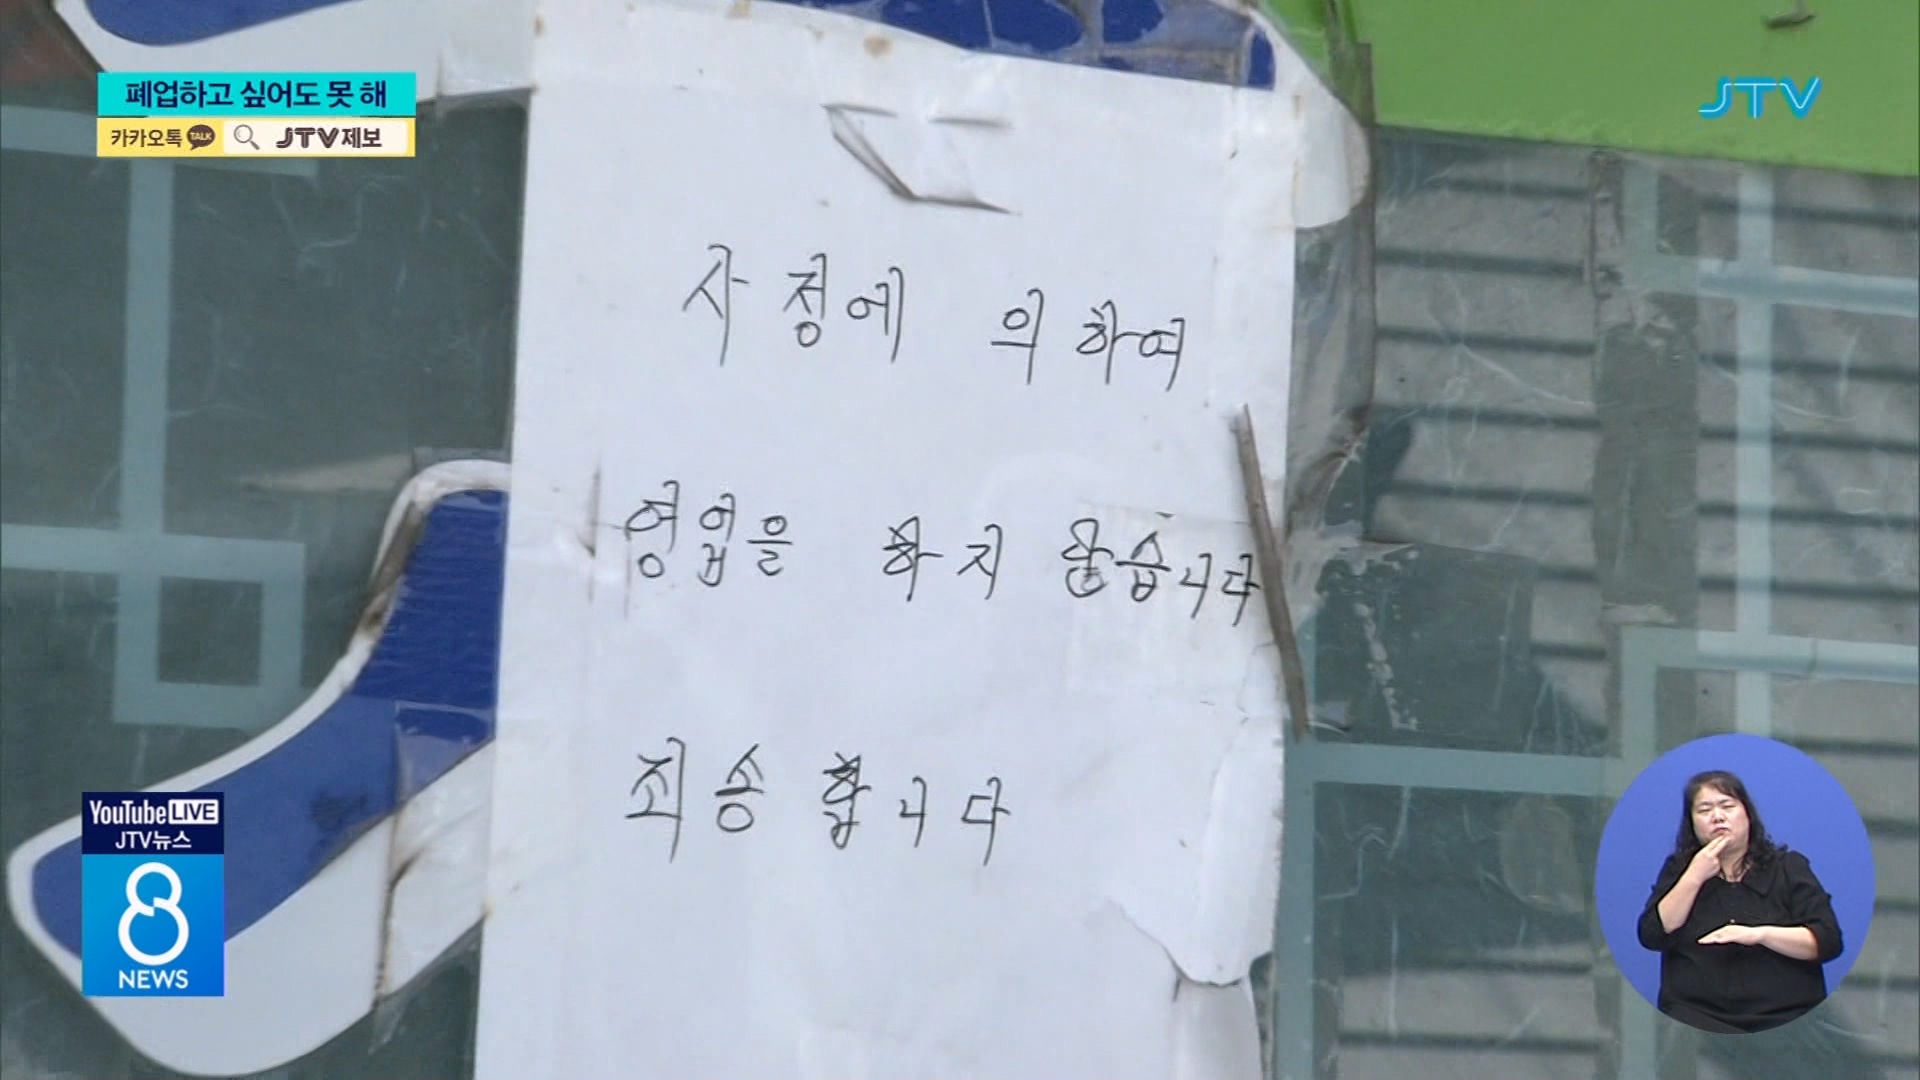 폐업하고 싶어도 못 해
카카오톡 TALK JTV제보
JTV
사정에 의하여
영업을 하지 않습니다
죄송합니다
YouTube LIVE
JTV뉴스
8
NEWS